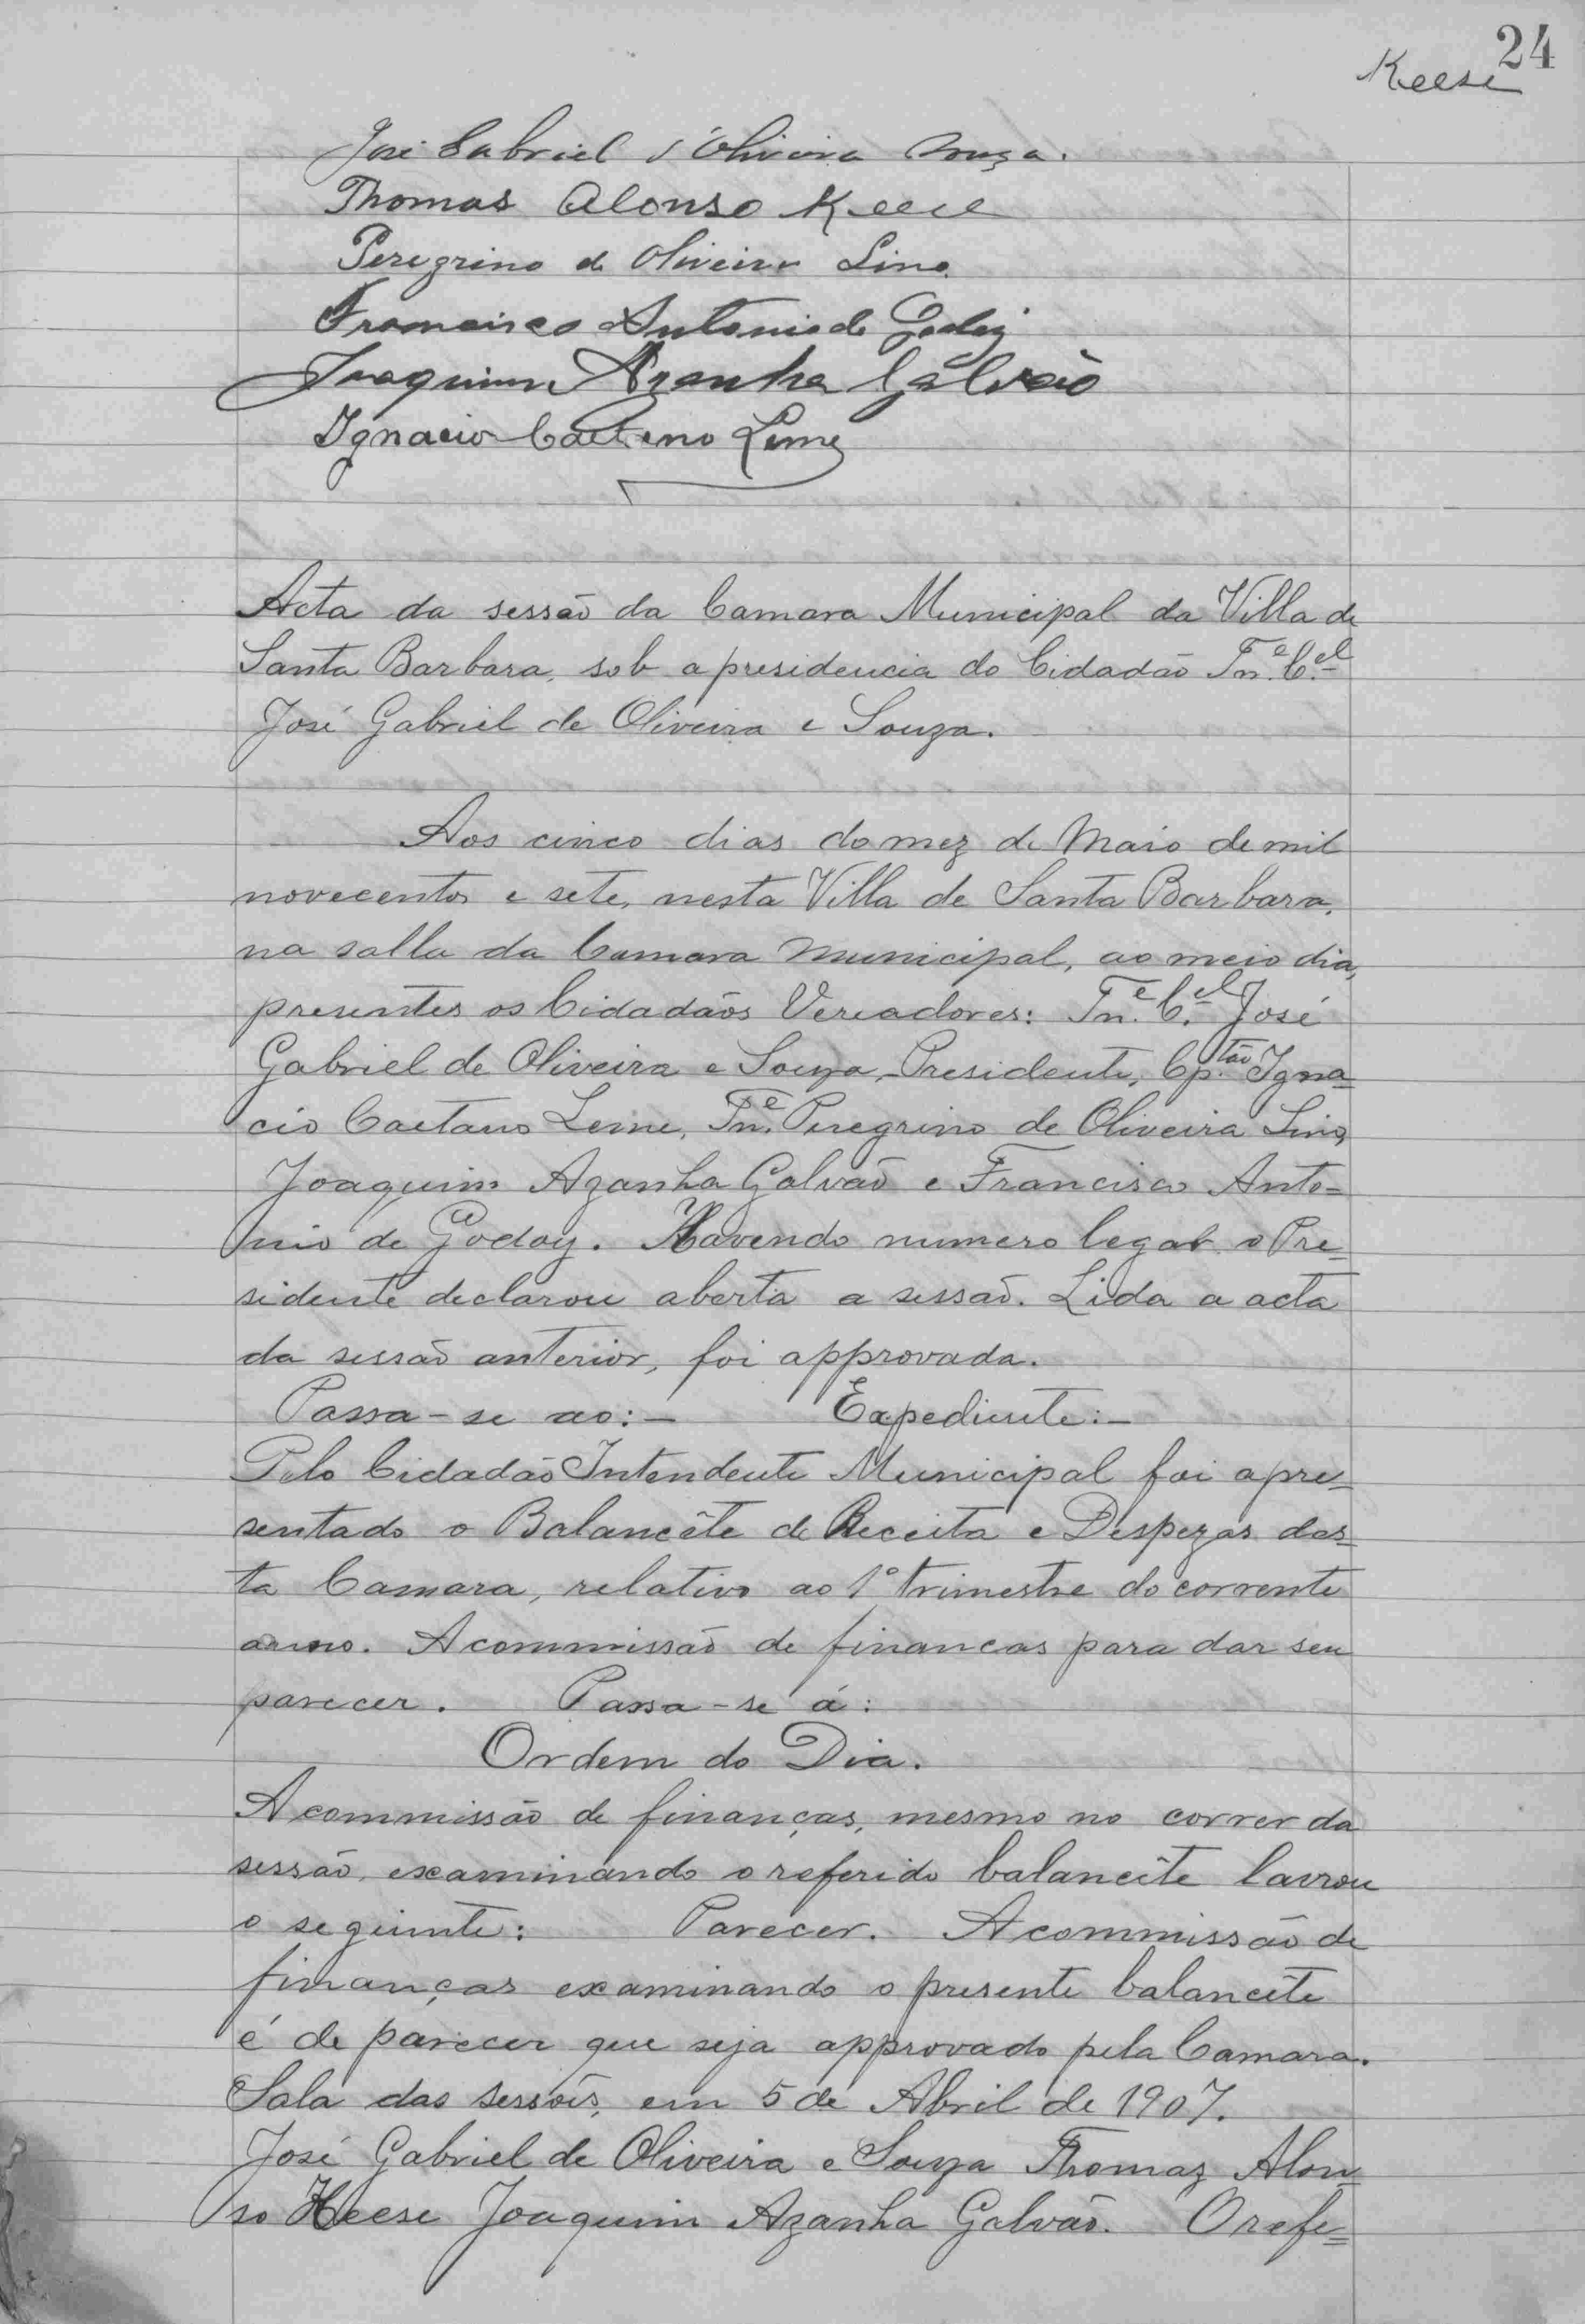 24
Keese
José Gabriel d'Oliveira Souza.
Thomas Alonso Keese
Peregrino de Oliveira Lino
Francisco Antonio de Godoy
Joaquim Azanha Galvão
Ignacio Caetano Leme
Acta da sessão da Camara Municipal da Villa de
Santa Barbara, sob a presidencia do Cidadão Tn.e C.el
José Gabriel de Oliveira e Souza.
Aos cinco dias do mez de Maio de mil
novecentos e sete, nesta Villa de Santa Barbara,
na salla da Camara Municipal, ao meio dia,
presentes os Cidadãos Vereadores: Tn.e C.el José
Gabriel de Oliveira e Souza, Presidente, Cp.tão Igna-
cio Caetano Leme, Tn.e Peregrino de Oliveira Lino,
Joaquim Azanha Galvão e Francisco Anto=
nio de Godoy. Havendo numero legal o Pre=
sidente declarou aberta a sessão. Lida a acta
da sessão anterior, foi approvada.
Passa-se ao:- Expediente:-
Pelo Cidadão Intendente Municipal foi apre=
sentado o Balancête de Receita e Despezas des=
ta Camara, relativo ao 1º trimestre do corrente
anno. A commissão de financas para dar seu
parecer. Passa-se á:
Ordem do Dia.
A commissão de finanças, mesmo no correr da
sessão, examinando o referido balancête lavrou
o seguinte: Parecer. A commissão de
finanças examinando o presente balancête
é de parecer que seja approvado pela Camara.
Sala das sessões, em 5 de Abril de 1907.
José Gabriel de Oliveira e Souza Thomaz Alon=
so Keese Joaquim Azanha Galvão. O refe=